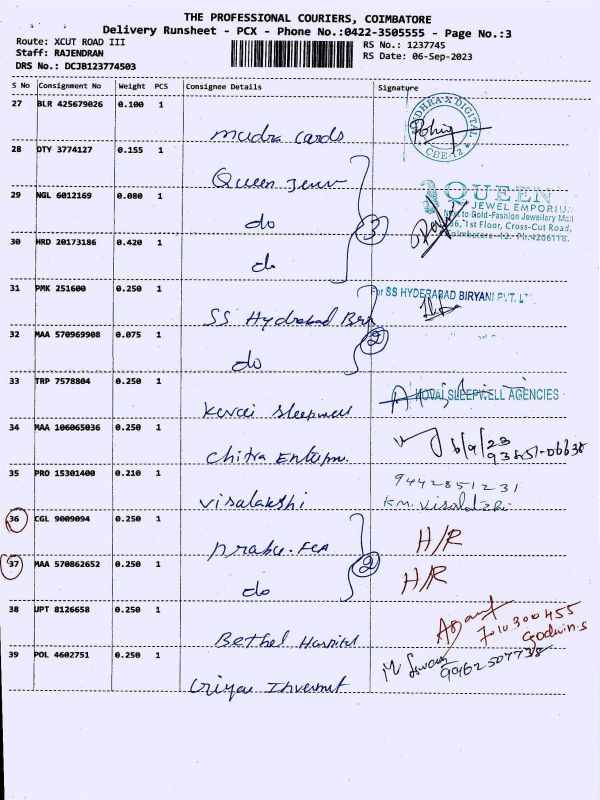 THE PROFESSIONAL COURIERS, COIMBATORE
Delivery Runsheet - PCX - Phone No.:0422-3505555 - Page No.:3
Route: XCUT ROAD III
RS No.: 1237745
Staff: RAJENDRAN
RS Date: 06-Sep-2023
DRS No.: DCJB123774503
S No Consignment No Weight PCS Consignee Details Signature
27 BLR 425679026 0.100 1
mudra cards
DIGITAL
CBE-12
28 DTY 3774127 0.155 1
Queen
29 NGL 6012169 0.080 1
do
3
QUEEN
JEWEL EMPORIUM
Next to Gold-Fashion Jewellery Mall
1st Floor, Cross-Cut Road,
Coimbatore - 12. Ph:4206118.
30 HRD 20173186 0.420 1
do
31 PMK 251600 0.250 1
SS Hyderabad
For SS HYDERABAD BIRYANI PVT. LT
32 MAA 570969908 0.075 1
do
2
33 TRP 7578804 0.250 1
Kovai Sleepwell
KOVAI SLEEPWELL AGENCIES
34 MAA 106065036 0.250 1
Chitra
6/9/23
93451-06638
35 PRO 15301400 0.210 1
Visalakshi
9442851231
36 CGL 9009094 0.250 1
prabu. FCA
H/R
37 MAA 570862652 0.250 1
do
2
H/R
38 UPT 8126658 0.250 1
Bethel Hospital
7010300455
Godwin.S
39 POL 4602751 0.250 1
9962507738